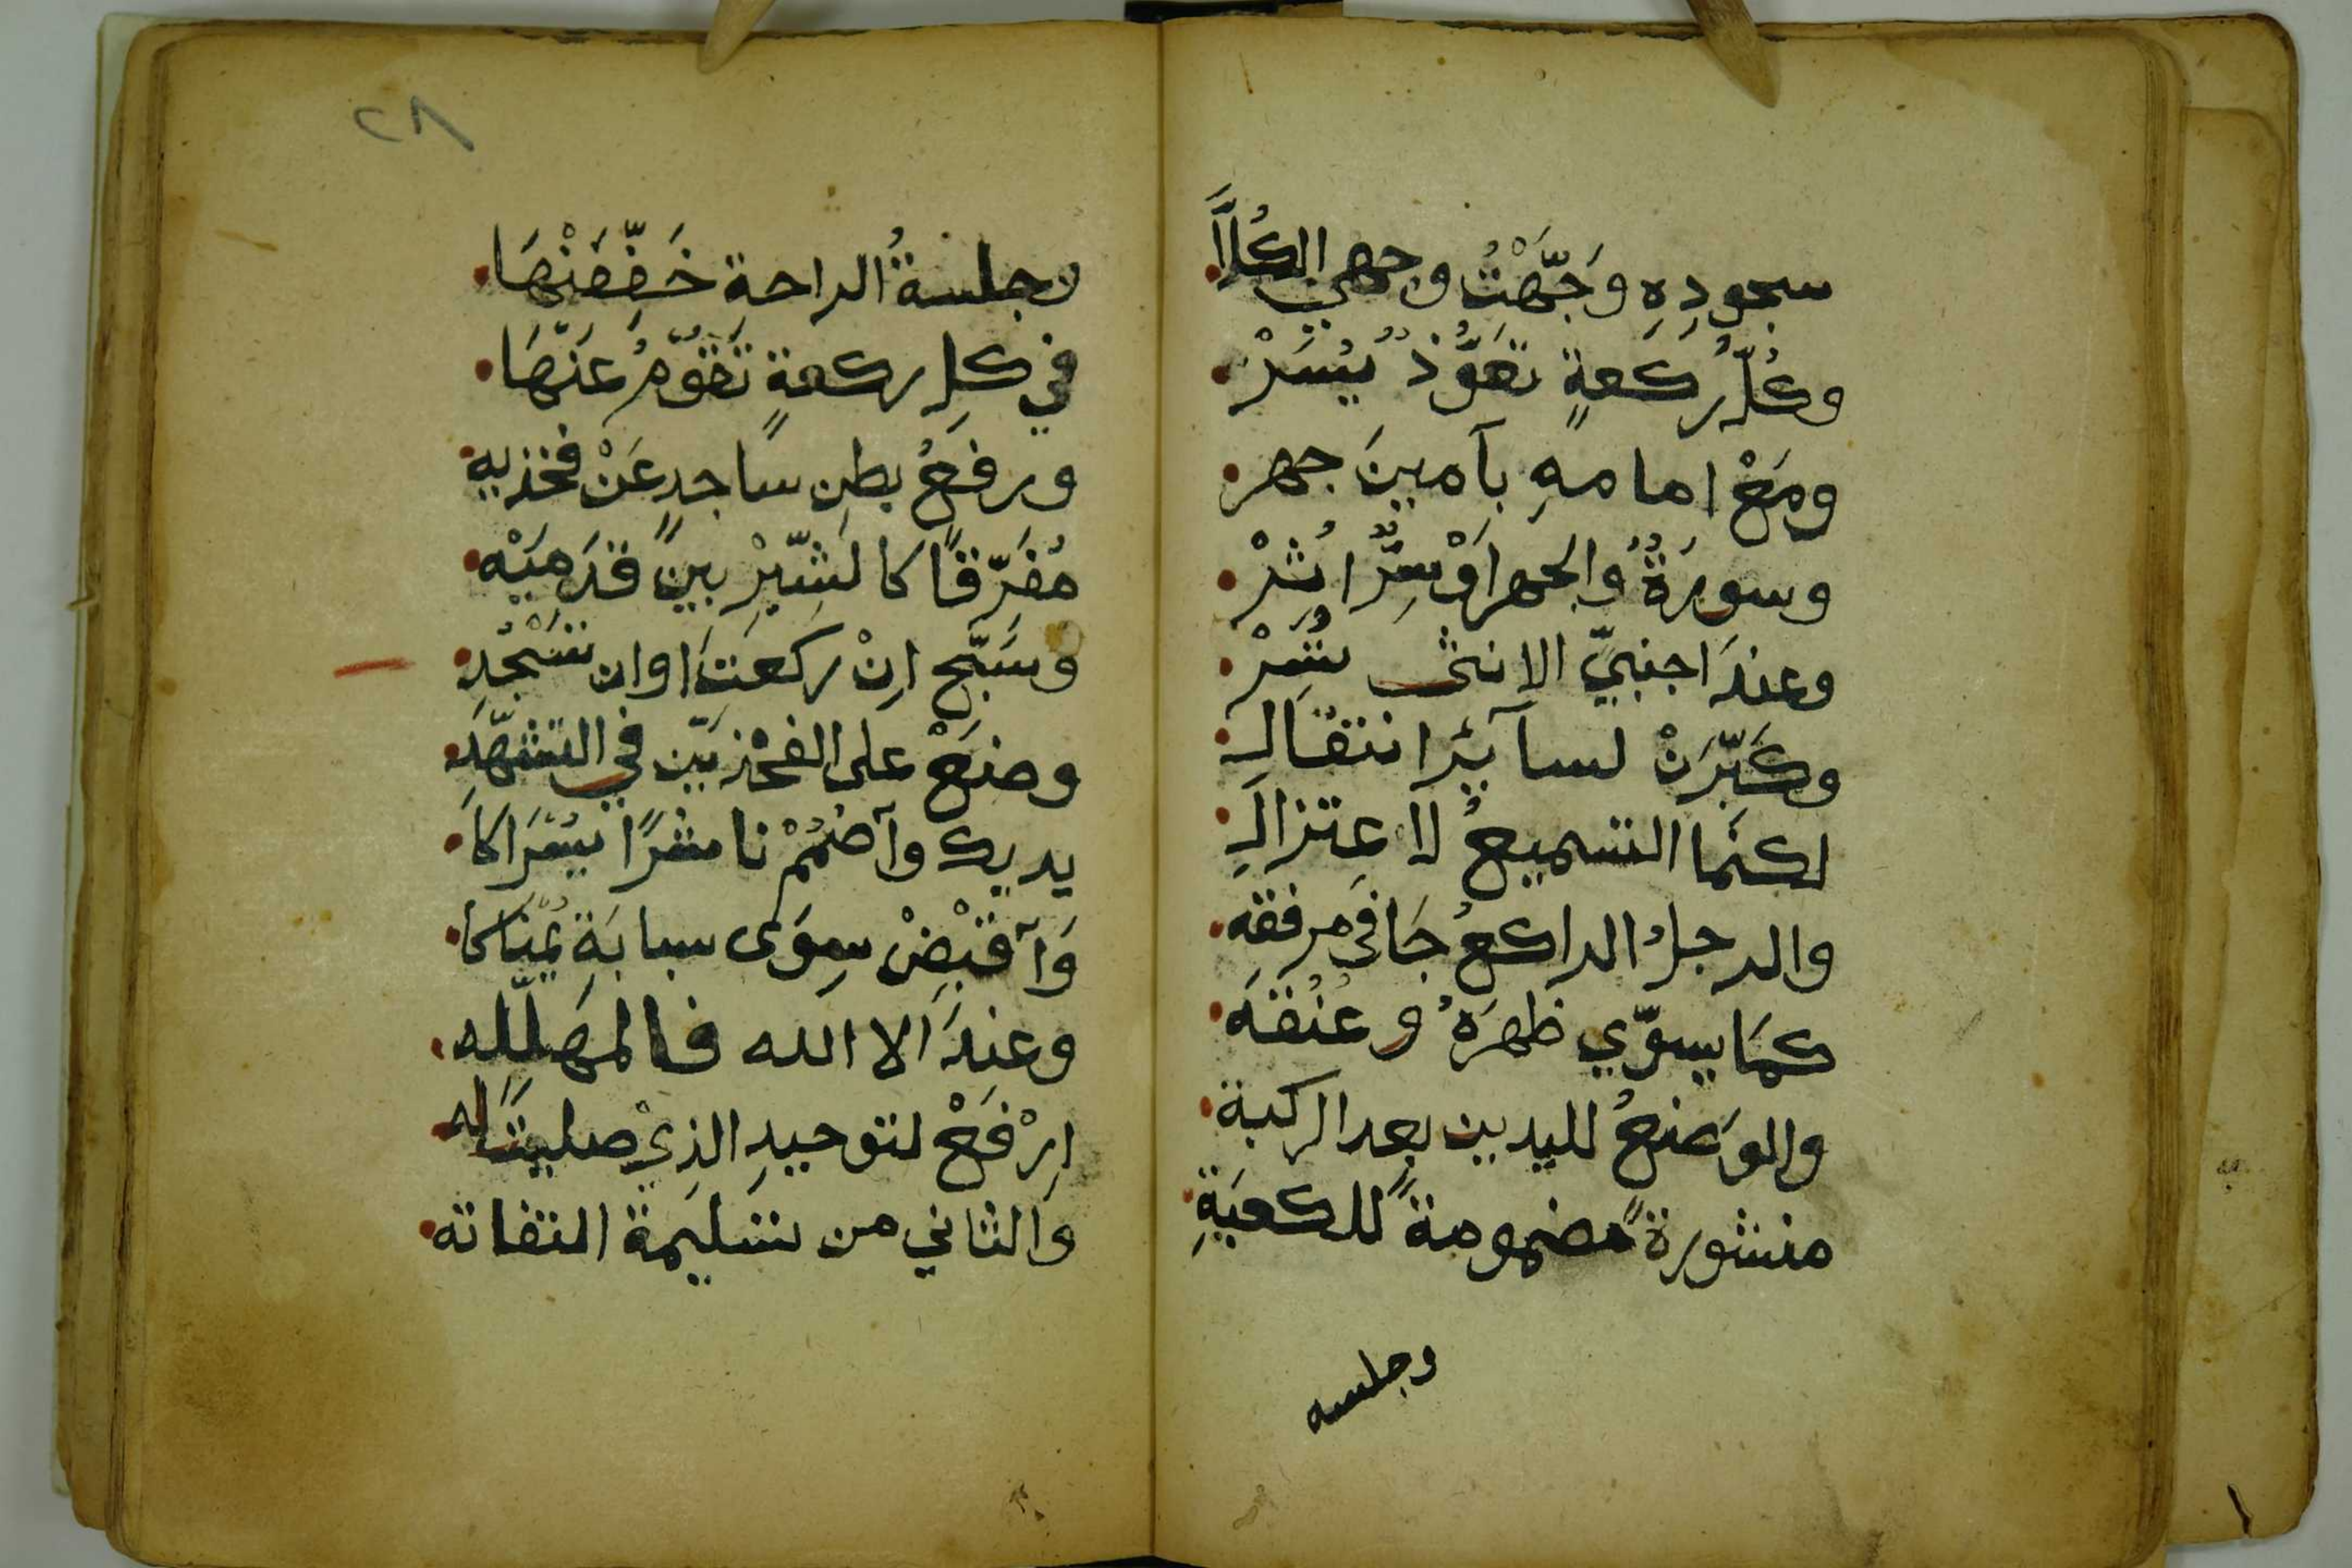 سجودِهِ وَجَّهْتُ وجهي الكُلَّاَ
وكُلُّ ركعةٍ تعَوُّذٌ يُسَرْ
ومَعْ امامهِ بآمينَ جهر
وسورَةٌ والجهرا وْسِرًّا اُثِرْ
وعندَ اجنبيّ الانثى تُسِرْ
وكَبِّرَنْ لسآئِرِ انتقالِ
لكنَّما التسميعُ لاعِتزالِ
والرجلُ الراكعُ جَافى مرفقه
كمَا يسوّي ظهرَهُ وعُنُقَه
والوَضعُ لليدين بعد الركبة
منشورةً مضمومةً للكعبَةِ
وجلسه
٢٨
وجلسةُ الراحةِ خَفِّفَنْهَا
في كلِ ركعةٍ تَقوّمُ عَنْهَا
ورفعُ بطنِ ساجدٍ عَنْ فخذيه
مُفَرِّقًا كالشِّبْرِ بينَ قَدَميْه
وسَبِّح اِنْ ركعتَ اوان تسْجُدِ
وضَعْ على الفخْذيْن في التشهّدِ
يديك وآضمُمْ ناشرًا يُسْرَاكَا
وَآقبْضْ سِوَى سبابَةِ يُمْنَاكا
وعندَ الا الله فالمهَلِّله
اِرْفَعْ لتوحيدِ الذِيْ صليتَ له
وَالثاني من تسَليمَة التفاته